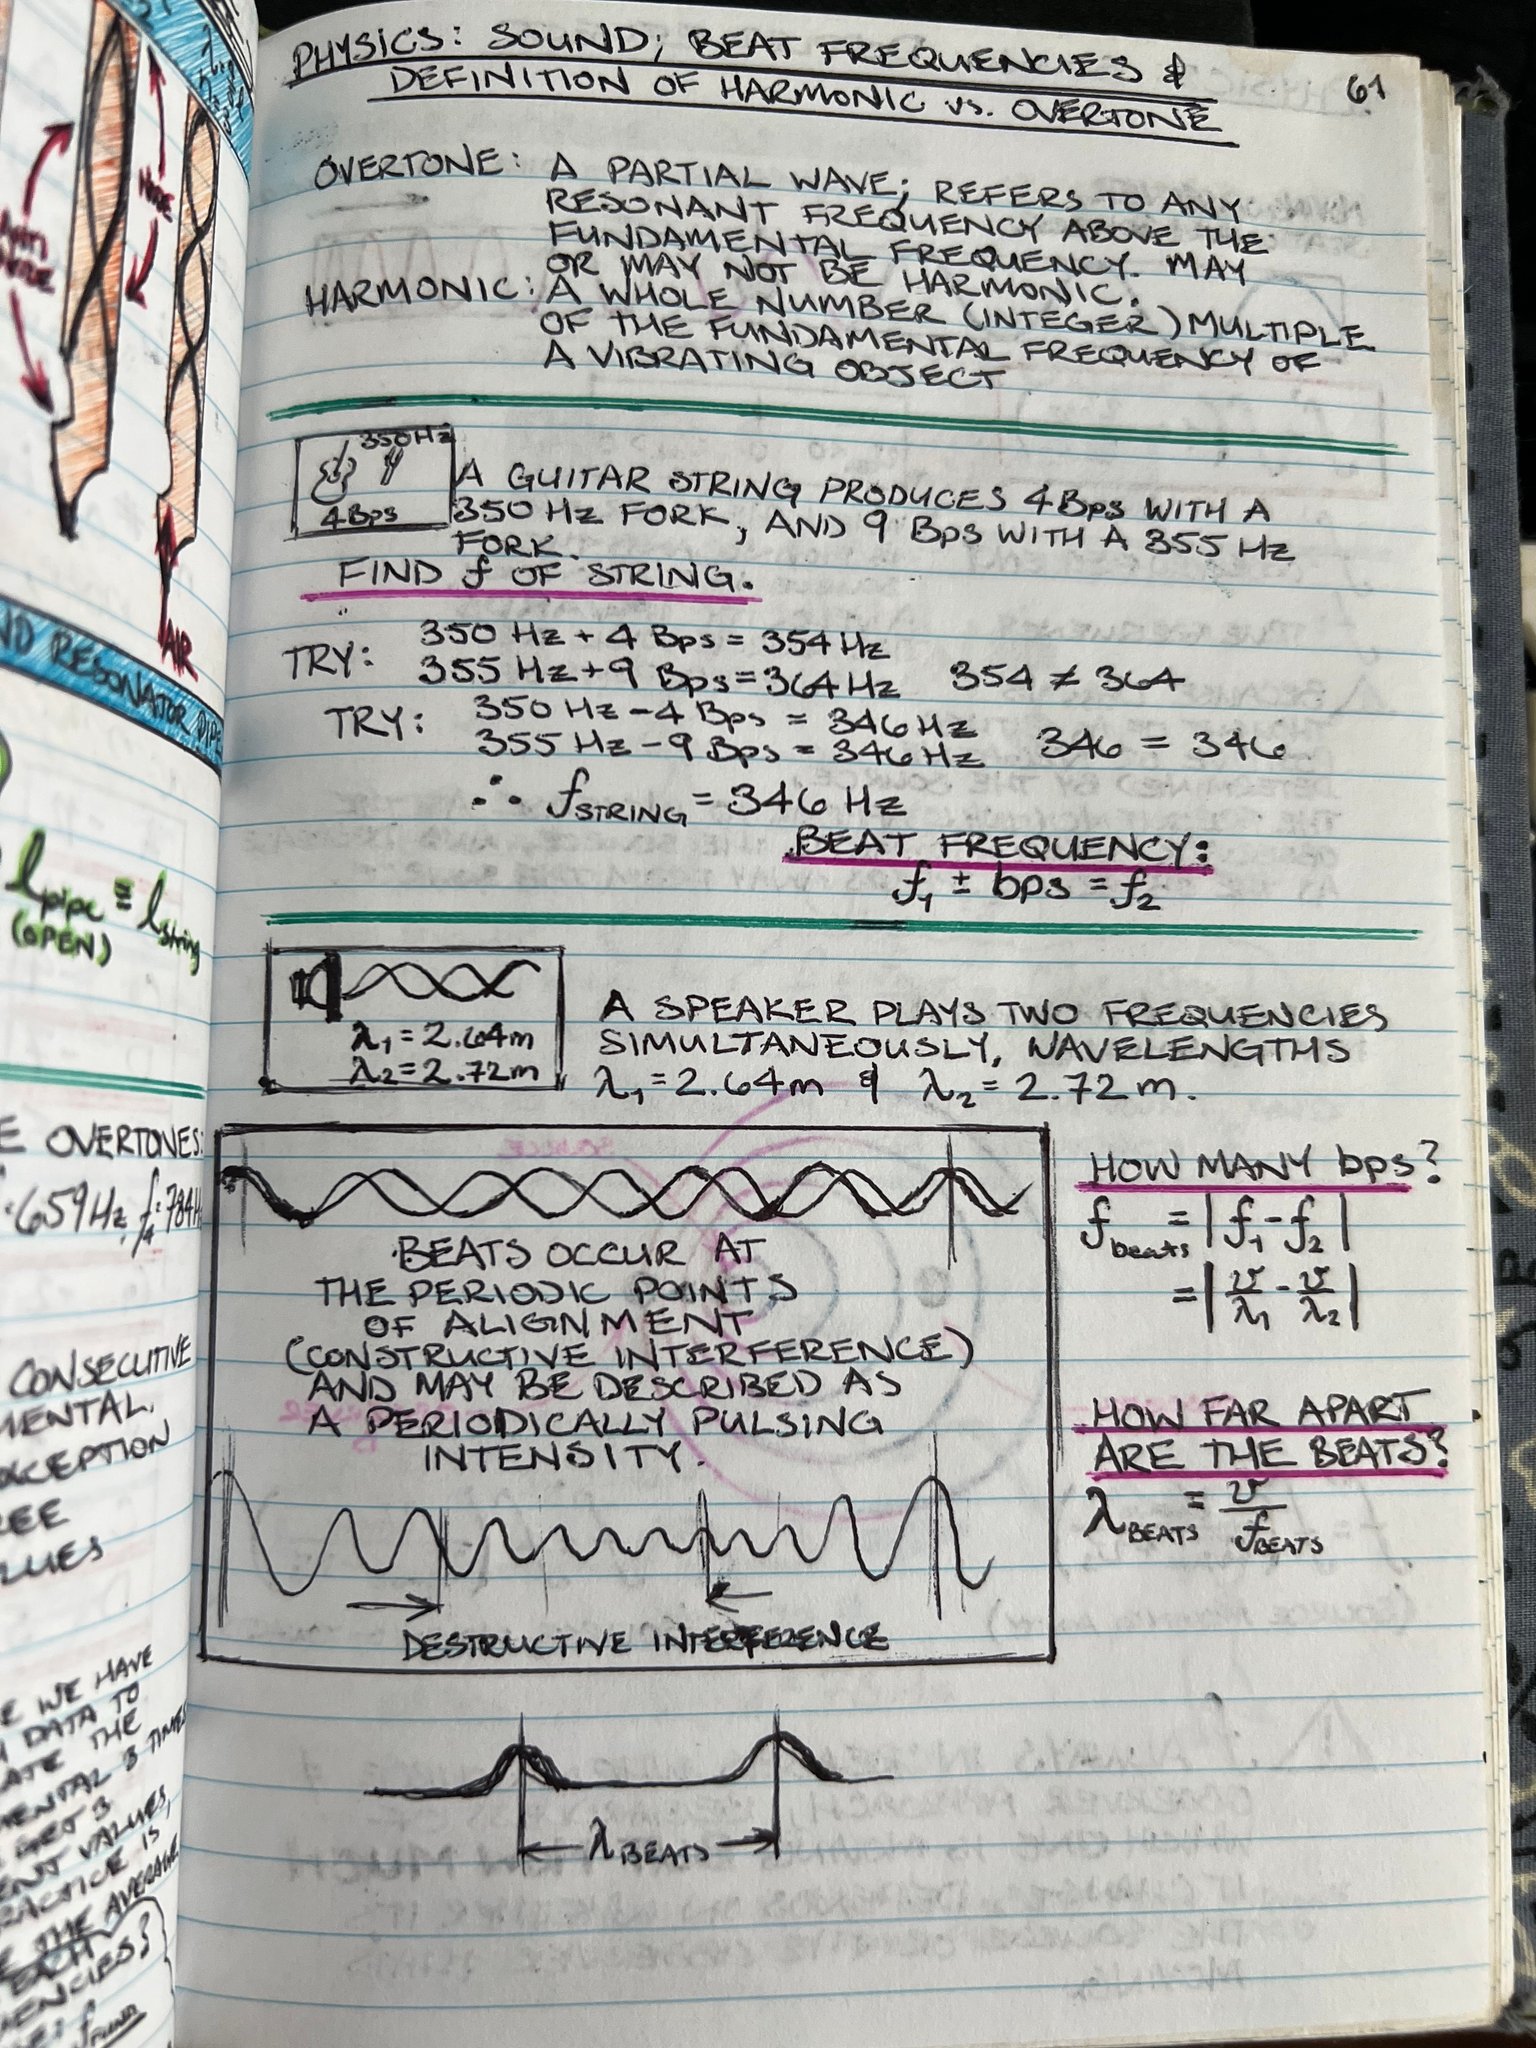 PHYSICS: SOUND; BEAT FREQUENCIES &
DEFINITION OF HARMONIC vs. OVERTONE
61
OVERTONE: A PARTIAL WAVE; REFERS TO ANY
RESONANT FREQUENCY ABOVE THE
FUNDAMENTAL FREQUENCY. MAY
OR MAY NOT BE HARMONIC.
HARMONIC: A WHOLE NUMBER (INTEGER) MULTIPLE
OF THE FUNDAMENTAL FREQUENCY OF
A VIBRATING OBJECT
350 Hz
4 Bps
A GUITAR STRING PRODUCES 4 Bps WITH A
350 Hz FORK, AND 9 Bps WITH A 355 Hz
FORK.
FIND f OF STRING.
TRY: 350 Hz + 4 Bps = 354 Hz
355 Hz + 9 Bps = 364 Hz 354 ≠ 364
TRY: 350 Hz - 4 Bps = 346 Hz
355 Hz - 9 Bps = 346 Hz 346 = 346
∴ f STRING = 346 Hz
BEAT FREQUENCY:
f₁ ± bps = f₂
λ₁ = 2.64m
λ₂ = 2.72m
A SPEAKER PLAYS TWO FREQUENCIES
SIMULTANEOUSLY, WAVELENGTHS
λ₁ = 2.64m & λ₂ = 2.72m.
BEATS OCCUR AT
THE PERIODIC POINTS
OF ALIGNMENT
(CONSTRUCTIVE INTERFERENCE)
AND MAY BE DESCRIBED AS
A PERIODICALLY PULSING
INTENSITY.
DESTRUCTIVE INTERFERENCE
HOW MANY bps?
f beats = | f₁ - f₂ |
= | v/λ₁ - v/λ₂ |
HOW FAR APART
ARE THE BEATS?
λ BEATS = v/f BEATS
λ BEATS
NODE
AIR
ND RESONATOR PIPE
l pipe ≡ l string
(OPEN)
E OVERTONES:
659 Hz, f₄ = 784 H
CONSECUTIVE
MENTAL,
CEPTION
EE
LUES
E WE HAVE
DATA TO
ATE THE
MENTAL 3 TIMES
3
ENT VALUES,
RACTICE IS
E THE AVERAGE
EACH
ENCIES?